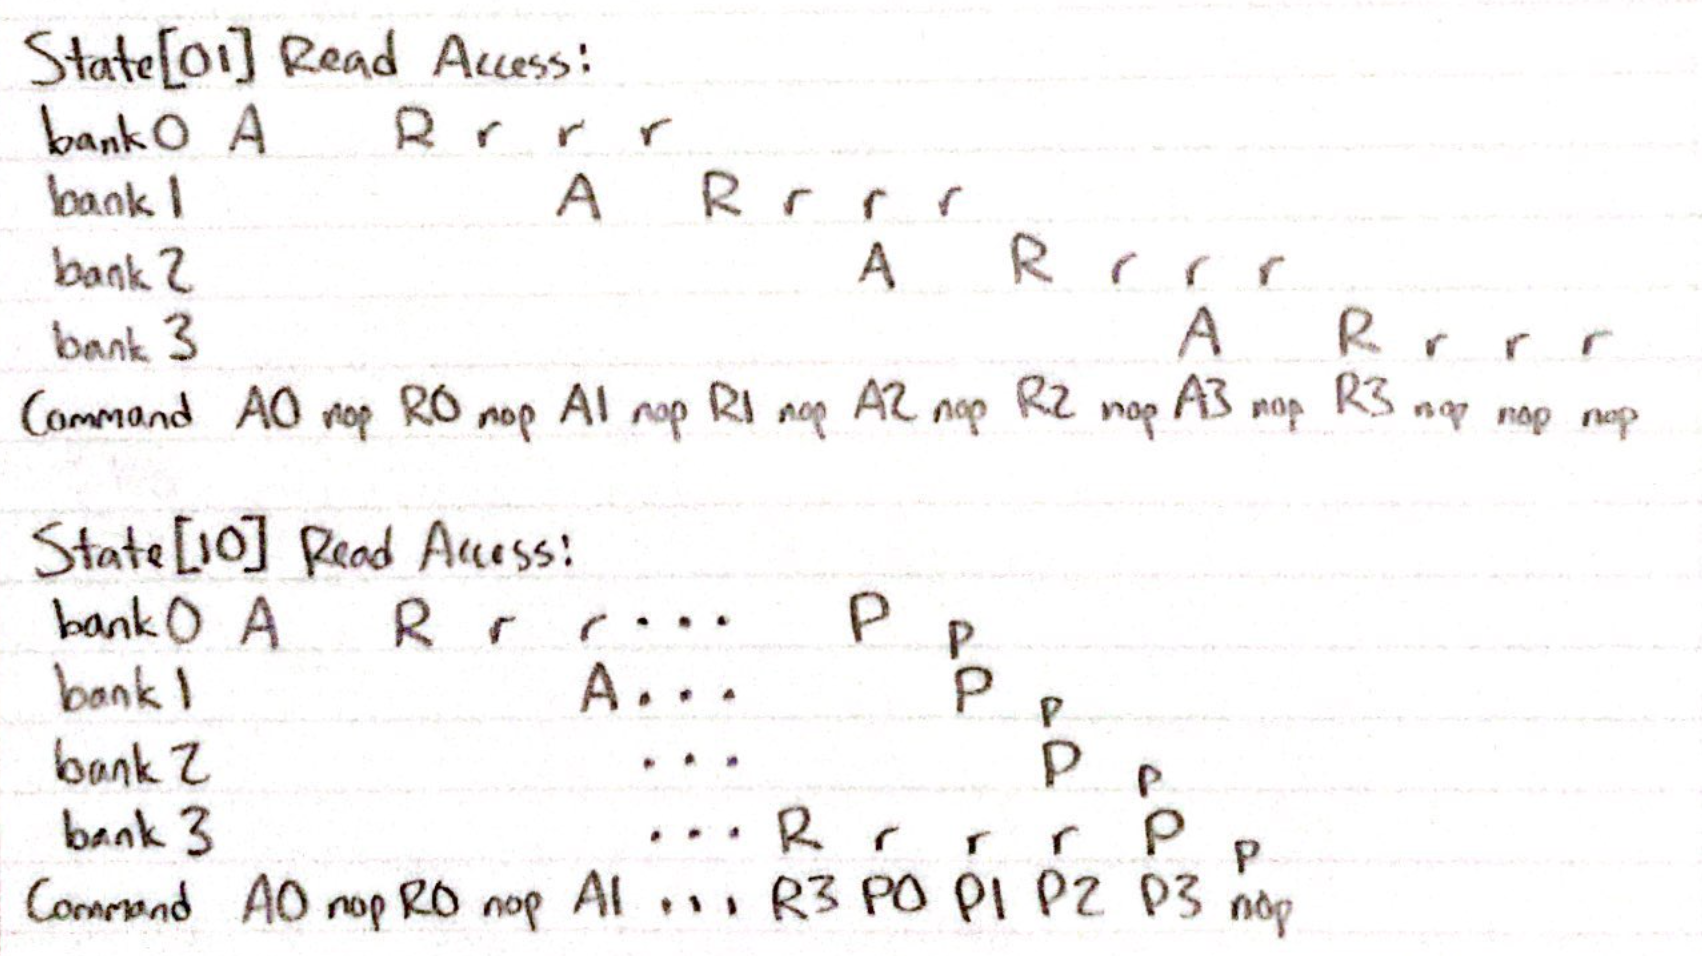 State[01] Read Access:
bank 0 A R r r r
bank 1 A R r r r
bank 2 A R r r r
bank 3 A R r r r
Command A0 nop R0 nop A1 nop R1 nop A2 nop R2 nop A3 nop R3 nop nop nop
State[10] Read Access:
bank 0 A R r r... P p
bank 1 A... P p
bank 2 ... P p
bank 3 ... R r r r P p
Command A0 nop R0 nop A1 ... R3 P0 P1 P2 P3 nop